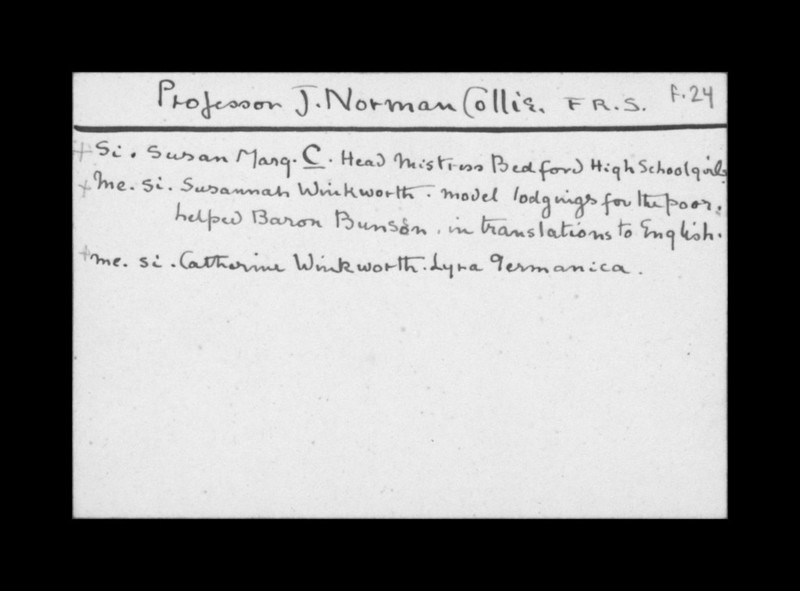 Professor J. Norman Collie. F.R.S. F.24
+ Si. Susan Marg. C. Head Mistress Bedford High School girls.
+ Me. Si. Susannah Winkworth. model lodgings for the poor.
helped Baron Bunsön. in translations to English.
+ me. si. Catherine Winkworth. Lyra Germanica.